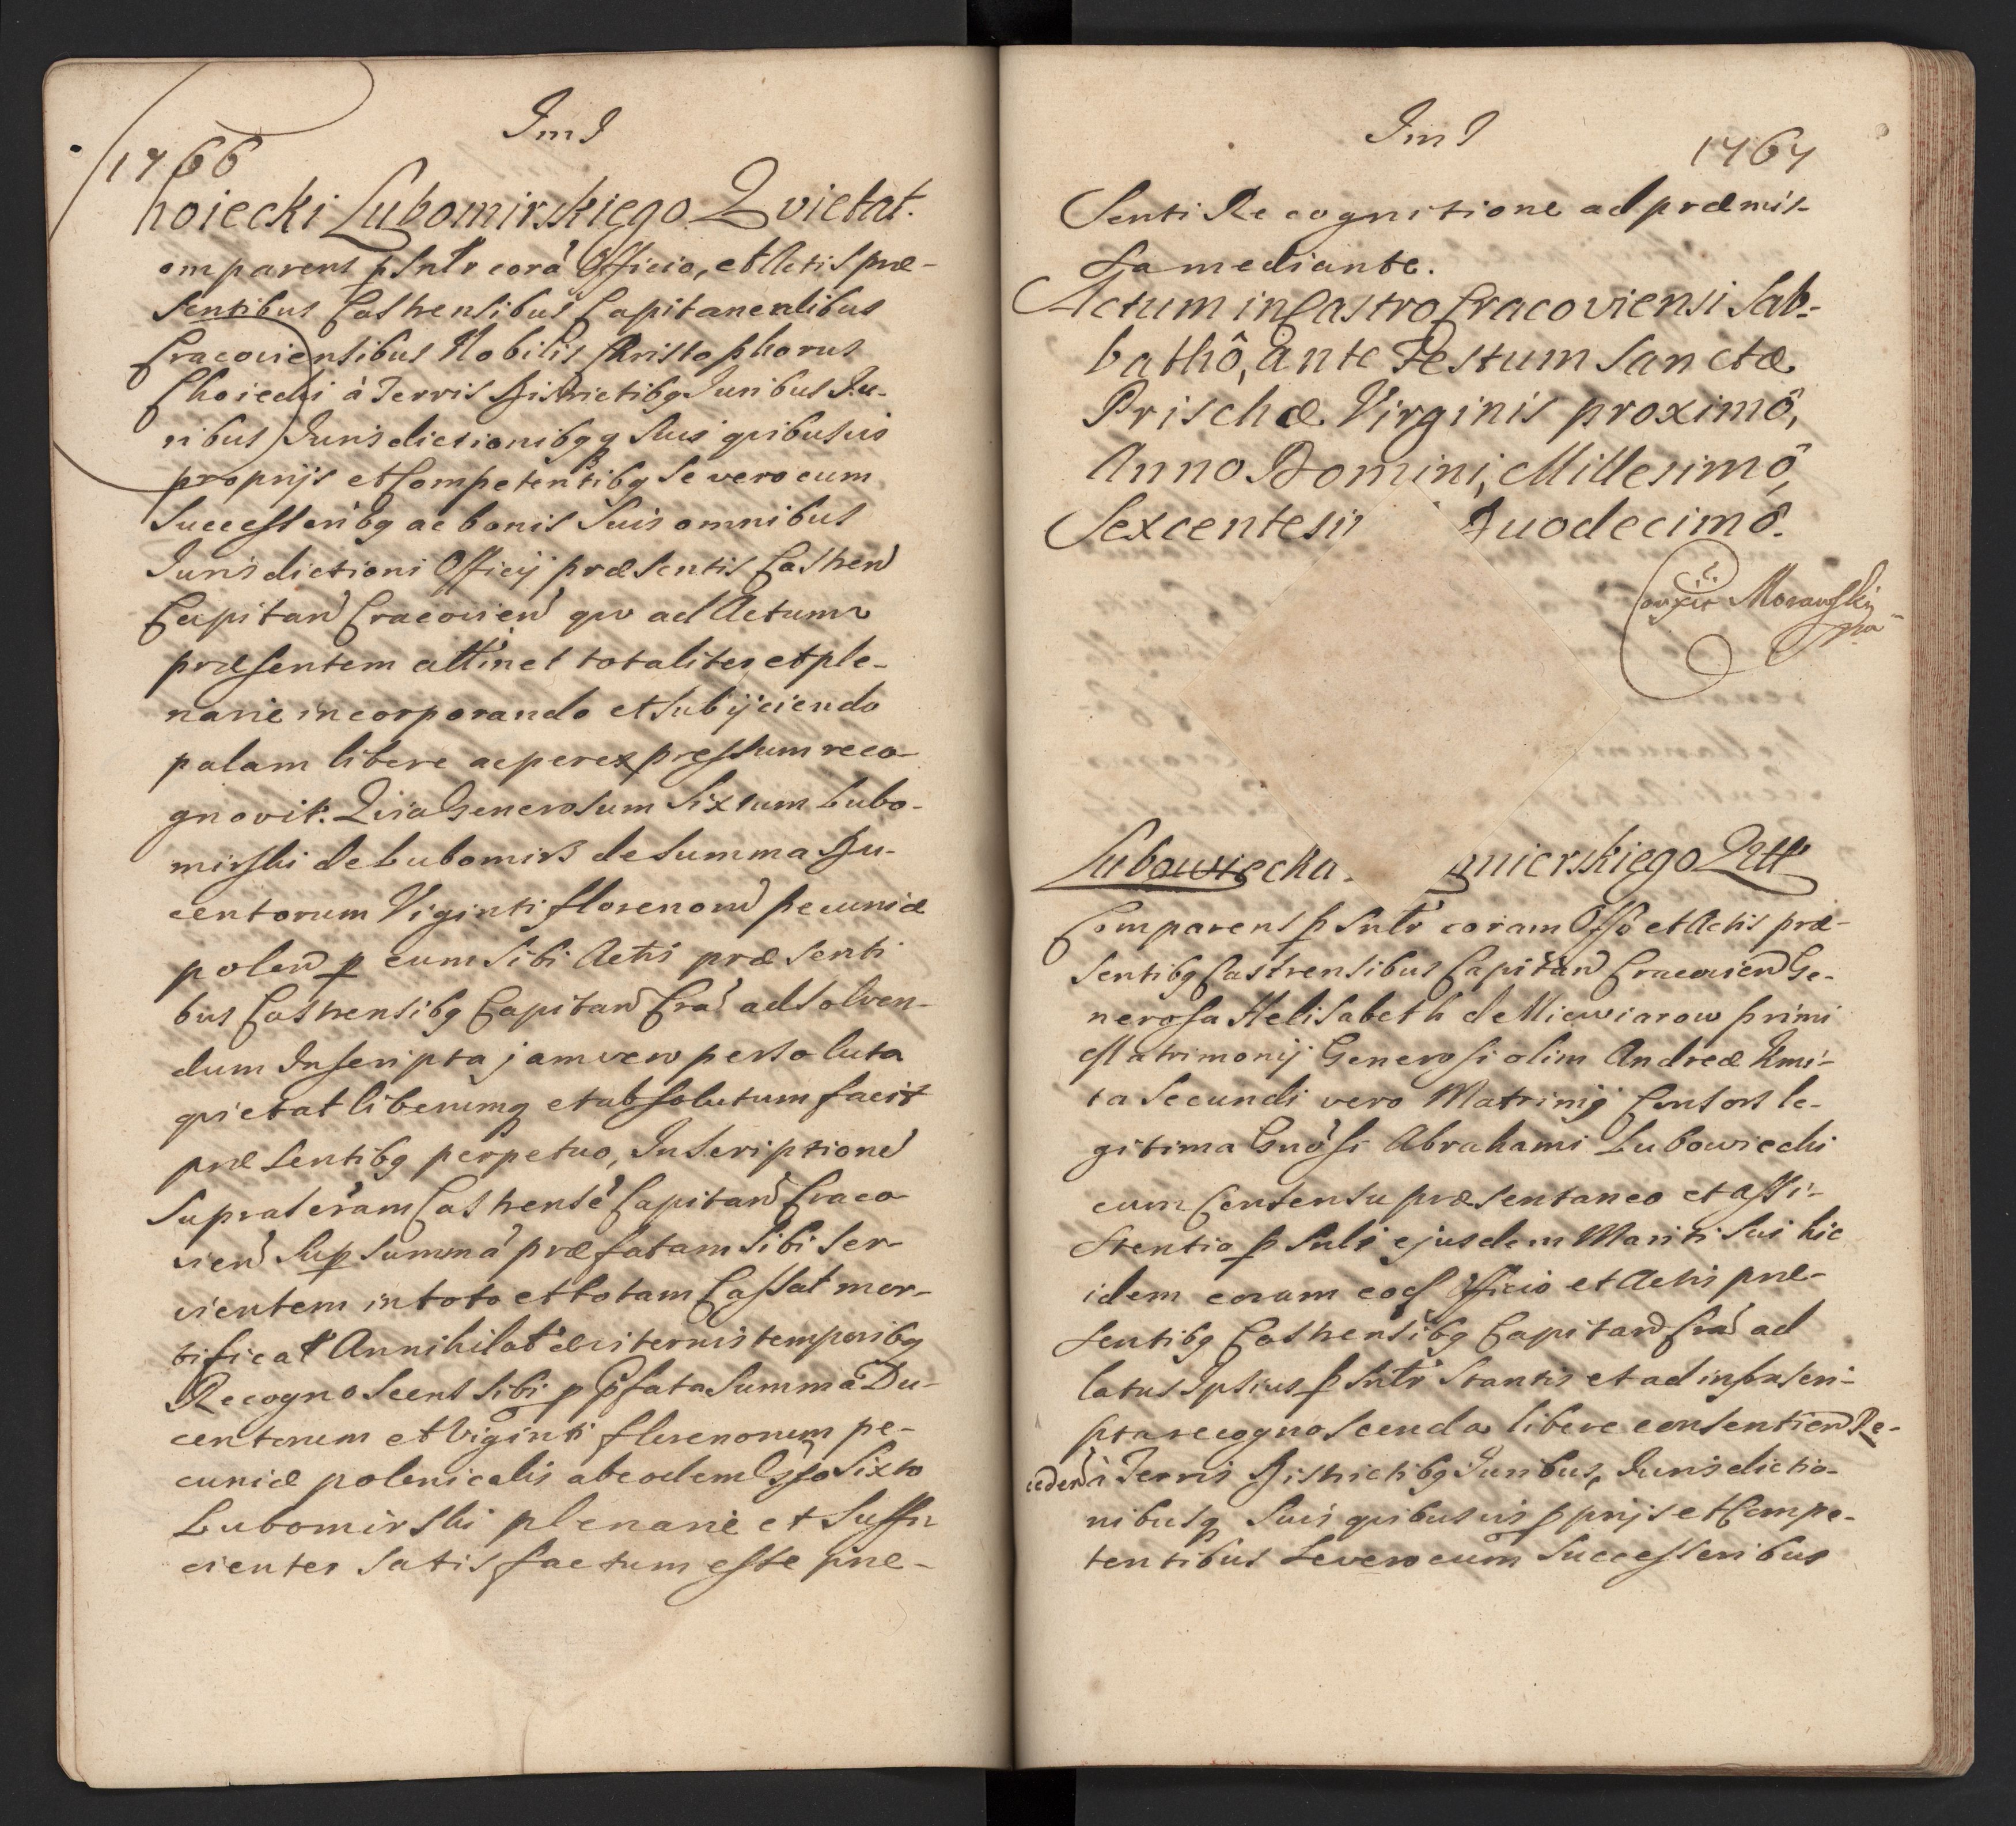 Im I
1766
hoiecki Lubomirskiego Qvietat.
omparens psntr corā Officio, et Actis præ-
sentibus Castrensibus Capitanealibus
Cracoviensibus Nobilis Christophorus
Choiecki à Terris Districtibq Juribus Ju-
ribus Jurisdictionibqq suis qvibusvis
proprijs et Competentibq Se vero cum
Successoribq ac bonis Suis omnibus
Jurisdictioni Officij præsentis Castren
Capitan Cracovien qvo ad Actum
præsentem attinet totaliter et ple-
narie incorporando et subijciendo
palam libere ac per expressum reco-
gnovit: Qvia Generosum Sixtum Lubo-
mirski de Lubomirz de Summa Du-
centorum Viginti florenorū pecuniæ
polon p eum Sibi Actis præsenti
bus Castrensibq Capitan Cra ad solven-
dum Inscripta jam vero persoluta
qvietat liberumq et absolutum facit
præsentibq perpetuo, Inscriptione
Supra Seram Castrense Capitan Craco
vien Sup Summa præfatam Sibi Ser-
vientem in toto et totam Cassat mor-
tificat Annihilat æviternis temporibq
Recognoscens sibi p pfata Summa Du-
centorum et Viginti florenorum pe-
cuniæ polonicalis ab eodem Gso Sixto
Lubomirski plenarie et Suffi
cienter Satisfactum esse præ-
Im I
1767
Senti Recognitione ad præmis-
sa mediante.
Actum in Castro Cracoviensi Sab-
bathô, ante Festum Sanctæ
Prischæ Virginis proximô,
Anno Domini, Millesimô,
Sexcentesi Duodecimô.
Morawski
Lubowiecka mierskiego Qtt
Comparens psntr coram Offo et Actis præ-
sentibq Castrensibus Capitan Cracovien Ge-
nerosa Helisabeth de Niewiarow primi
Matrimonij Generosi olim Andreæ Kmi-
ta Secundi vero Matrimij Consors le-
gitima Gnosi Abrahami Lubowiecki
cum Consensu præsentaneo et assi-
stentia psnli ejusdem Mariti Sui hic
idem coram eod Officio et Actis præ-
sentibq Castrensibq Capitan Cra ad
latus Ipsius psntr Stantis et ad infrascri-
pta recognoscenda libere consentien Re-
ceden à Terris Districtibq Juribus, Jurisdictio-
nibusq Suis qvibusvis pprijs et Compe-
tentibus Se vero cum Successoribus